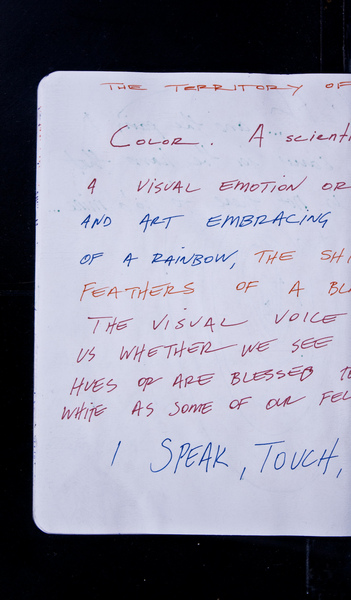 THE TERRITORY OF
COLOR. A scienti
A VISUAL EMOTION OR
AND ART EMBRACING
OF A RAINBOW, THE SHI
FEATHERS OF A BL
THE VISUAL VOICE
US WHETHER WE SEE
HUES OR ARE BLESSED TO
WHITE AS SOME OF OUR FEL
I SPEAK, TOUCH,